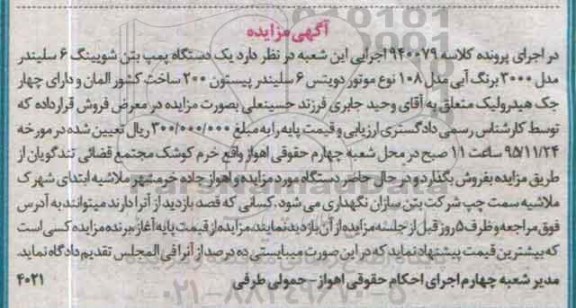 آگهی مزایده
در اجرای پرونده کلاسه ۹۴۰۰۷۹ اجرایی این شعبه در نظر دارد یک دستگاه پمپ بتن شویینگ ۶ سلیندر
مدل ۲۰۰۰ برنگ آبی مدل ۱۰۸ نوع موتور دویتس ۶ سلیندر پیستون ۲۰۰ ساخت کشور المان و دارای چهار
جک هیدرولیک متعلق به آقای وحید جابری فرزند حسینعلی بصورت مزایده در معرض فروش قرار داده که
توسط کارشناس رسمی دادگستری ارزیابی و قیمت پایه را به مبلغ ۳۰۰/۰۰۰/۰۰۰ ریال تعیین شده در مورخه
۹۵/۱۱/۲۴ ساعت ۱۱ صبح در محل شعبه چهارم حقوقی اهواز واقع خرم کوشک مجتمع قضائی تندگویان از
طریق مزایده بفروش بگذارد و در حال حاضر دستگاه مورد مزایده و اهواز جاده خرمشهر ملاشیه ابتدای شهرک
ملاشیه سمت چپ شرکت بتن سازان نگهداری می شود. کسانی که قصد بازدید از آنرا دارند میتوانند به آدرس
فوق مراجعه و ظرف ۵ روز قبل از جلسه مزایده از آن بازدید نمایند. مزایده از قیمت پایه آغاز برنده مزایده کسی است
که بیشترین قیمت پیشنهاد نماید که در این صورت میبایستی ده درصد از آنرا فی المجلس تقدیم دادگاه نماید.
مدیر شعبه چهارم اجرای احکام حقوقی اهواز - حمولی طرفی ۴۰۲۱